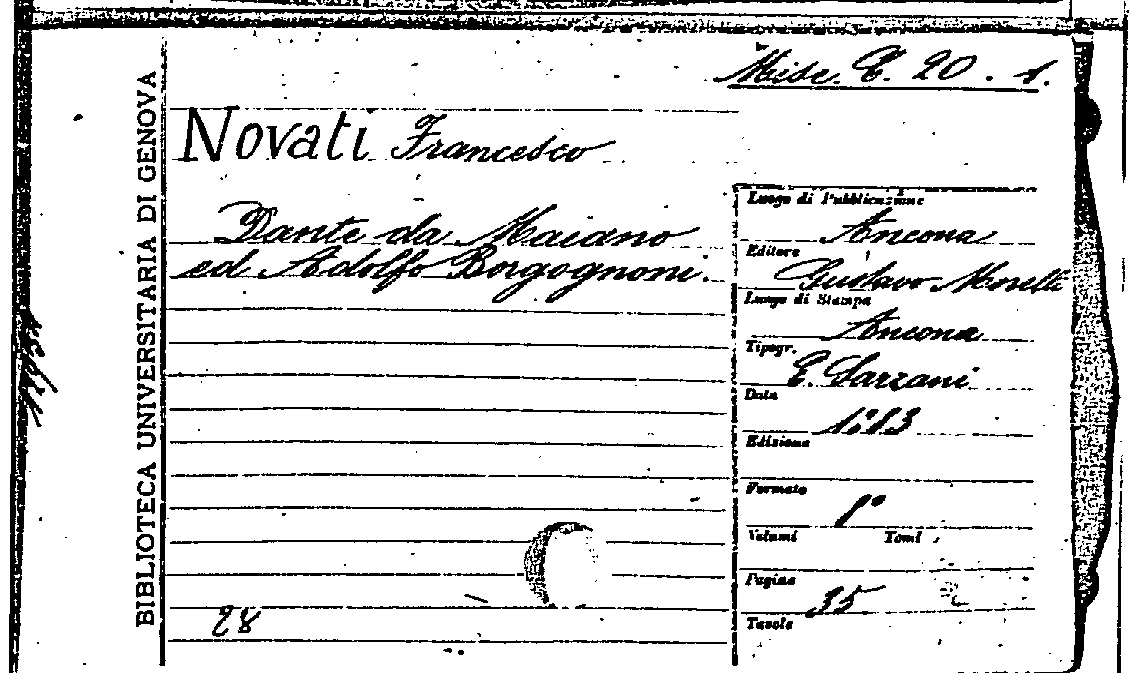 Misc. E. 20. 1.
BIBLIOTECA UNIVERSITARIA DI GENOVA
Novati Francesco
Dante da Maiano
ed Adolfo Borgognoni.
Luogo di Pubblicazione
Ancona
Editore
Gustavo Morelli
Luogo di Stampa
Ancona
Tipogr.
E. Sarzani
Data
1883
Edizione
Formato
8°
Volumi Tomi
Pagine
35
Tavole
28